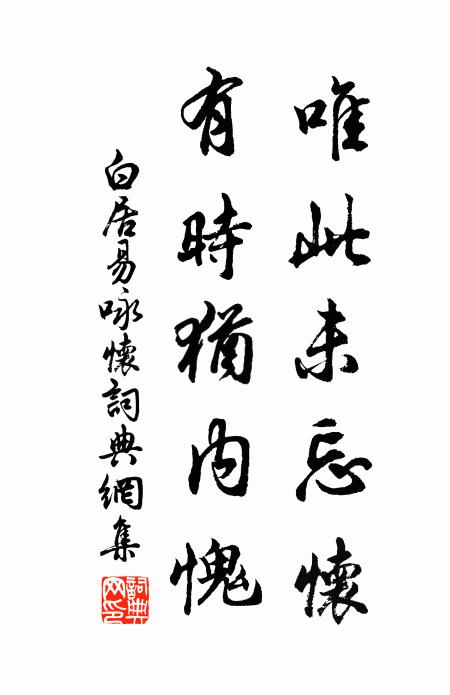 唯此未忘懷
有時猶內愧
白居易咏懷詞典網集
詞典網印